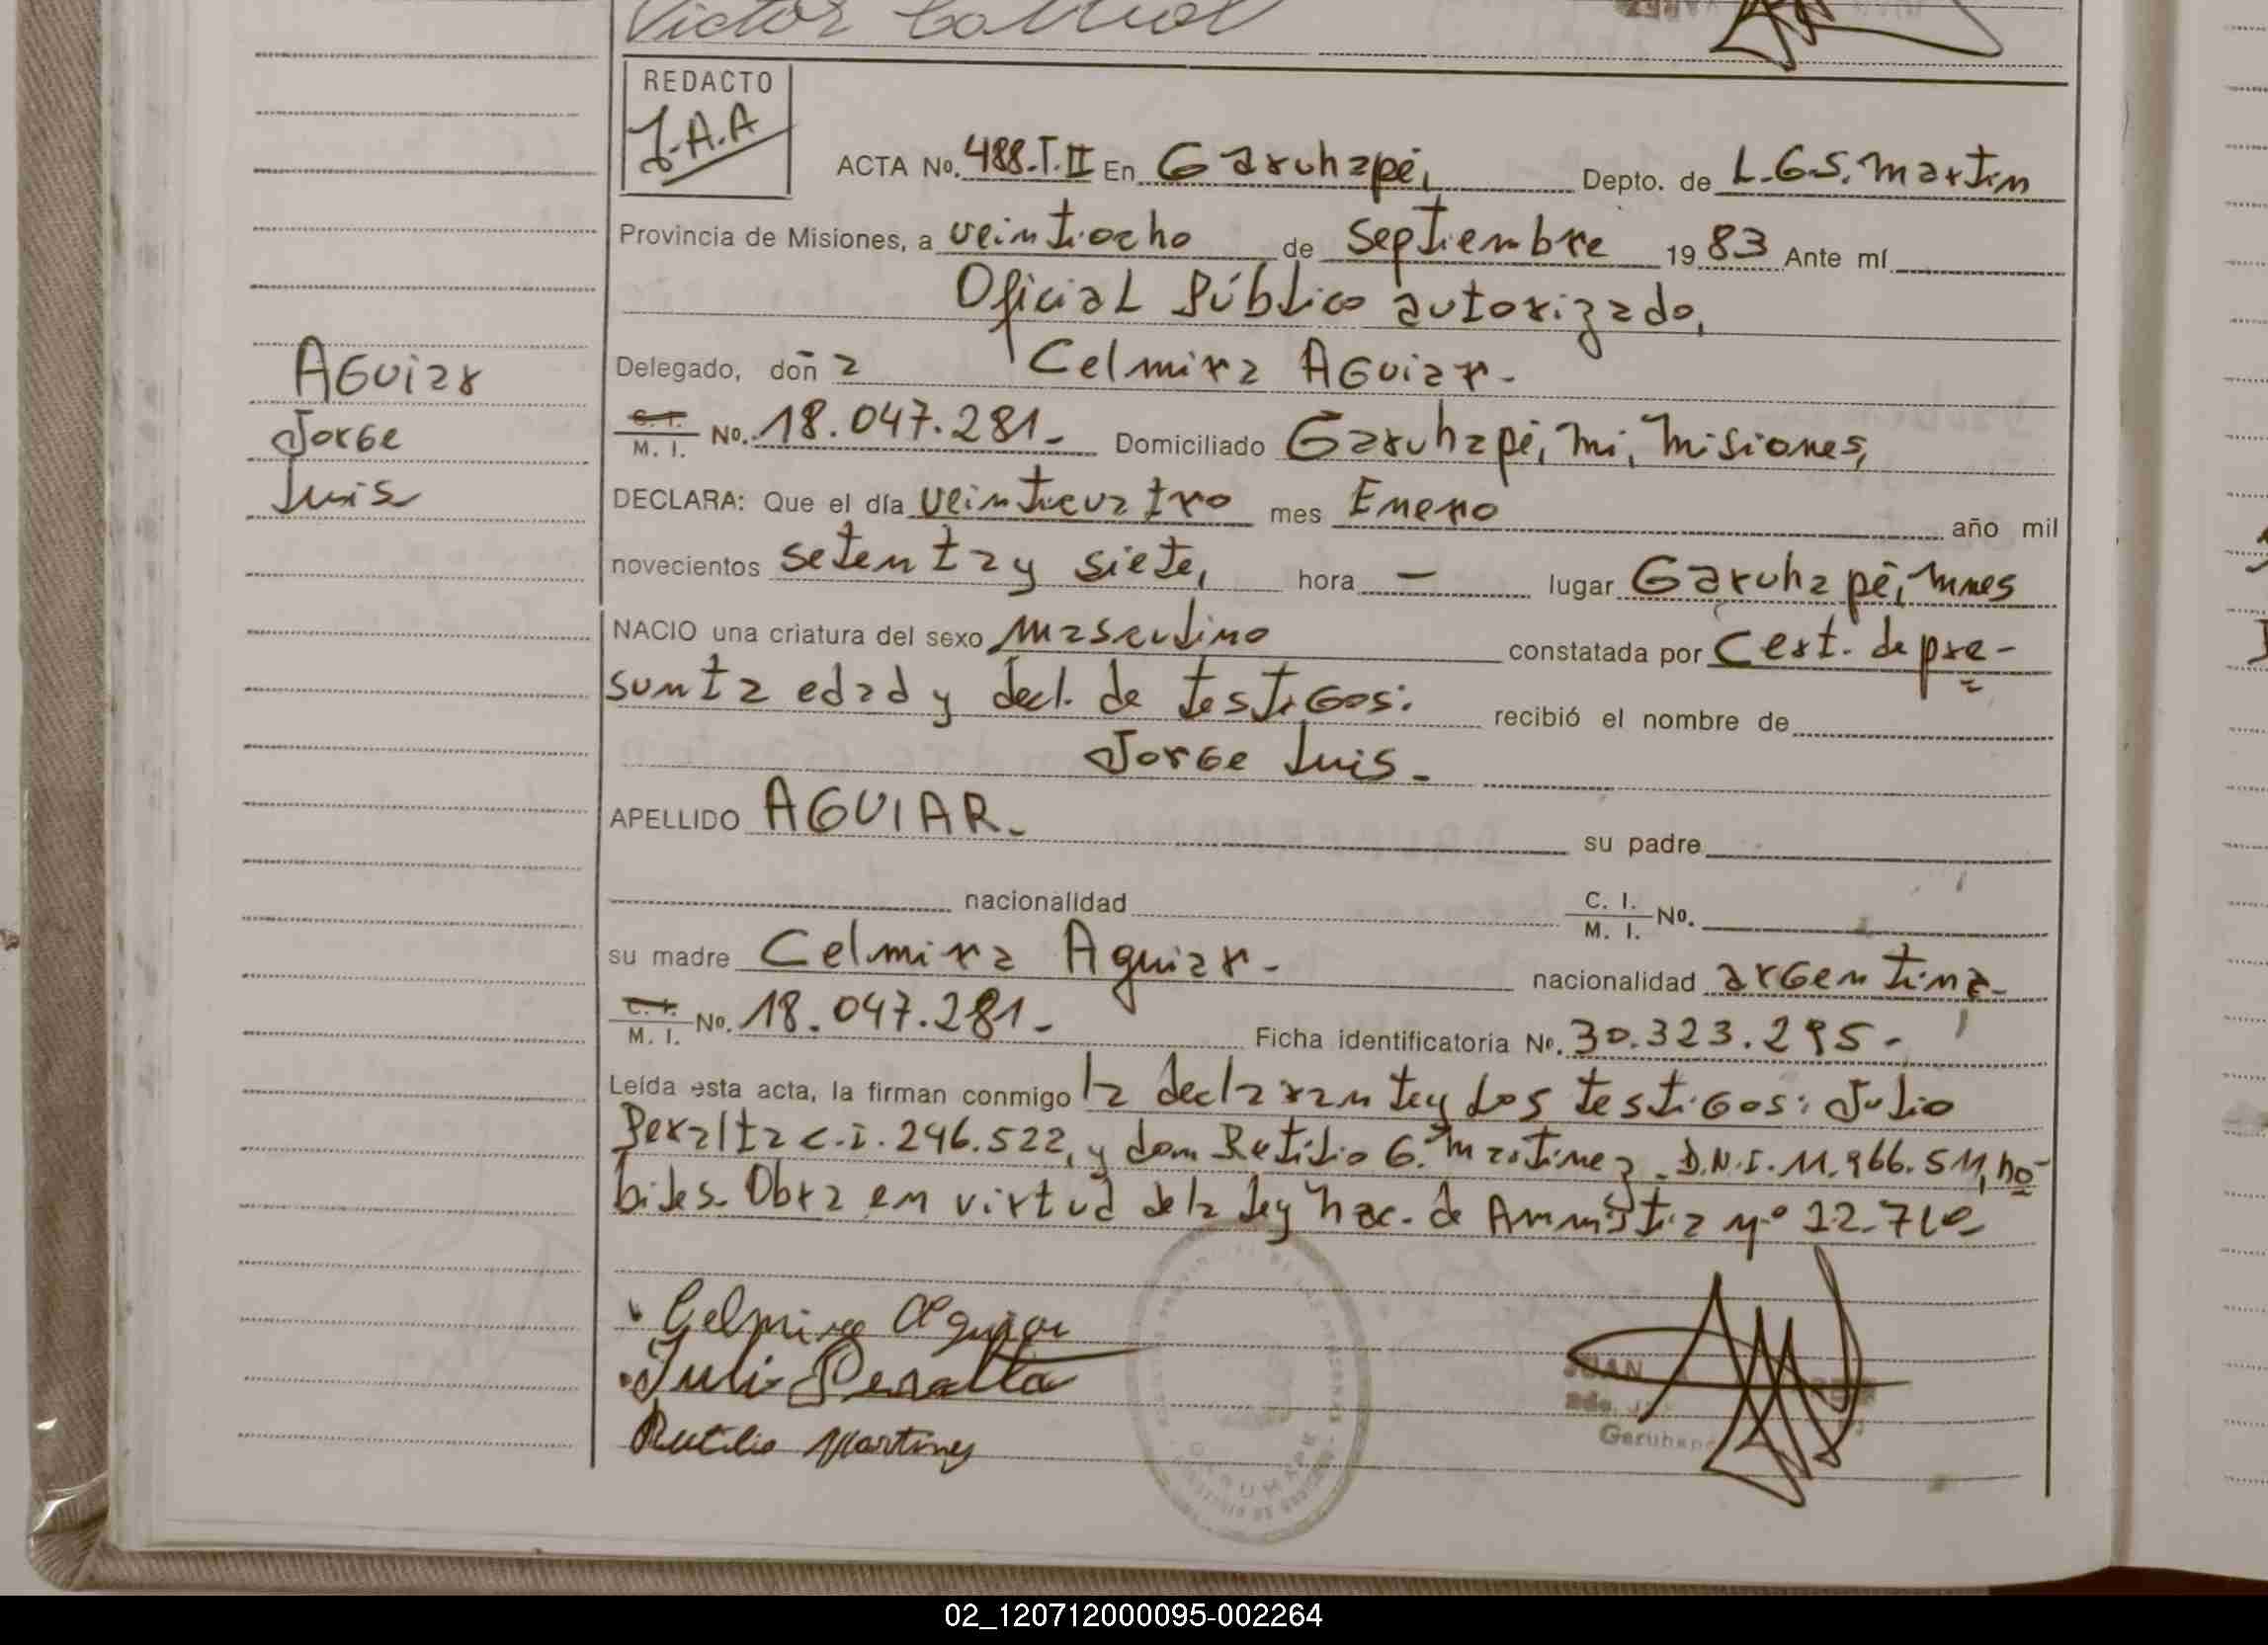 Victor Cabral
REDACTO
J.A.A
ACTA No. 488.T.II En Garuhapé, Depto. de L.G.S. Martin
Provincia de Misiones, a veintiocho de septiembre 1983 Ante mí
Oficial Público autorizado,
Delegado, doña Celmira Aguiar.
C. I. / M. I. No. 18.047.281.- Domiciliado Garuhapé, Mi, Misiones,
AGUiar
Jorge
Luis
DECLARA: Que el día veinticuatro mes Enero año mil
novecientos setenta y siete, hora — lugar Garuhapé, Mnes
NACIO una criatura del sexo masculino constatada por Cert. de pre-
sunta edad y decl. de testigos: recibió el nombre de
Jorge Luis.-
APELLIDO AGUIAR.- su padre
nacionalidad C. I. / M. I. No.
su madre Celmira Aguiar.- nacionalidad argentina-
C. I. / M. I. No. 18.047.281.- Ficha identificatoria No. 30.323.295.-
Leída esta acta, la firman conmigo la declarante y los testigos: Julio
Peralta c.i. 246.522, y don Rutilio G. Martinez. D.N.I. 11.966.511, há-
biles. Obra en virtud de la ley Nac. de Amnistia nº 22.710
Celmira Aguiar
Julio Peralta
Rutilio Martinez
JUAN
Garuhapé
02_120712000095-002264